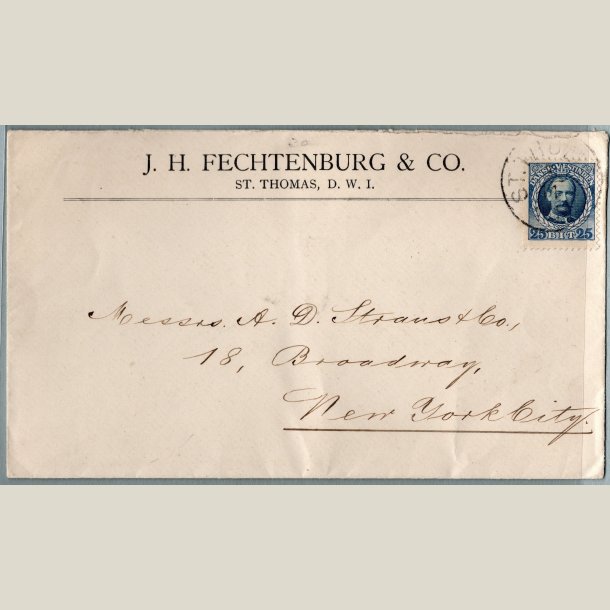 J. H. FECHTENBURG & CO.
ST. THOMAS, D. W. I.
ST. THO
25 BIT 25
Messrs. A. D. Straus & Co.,
18, Broadway,
New York City.